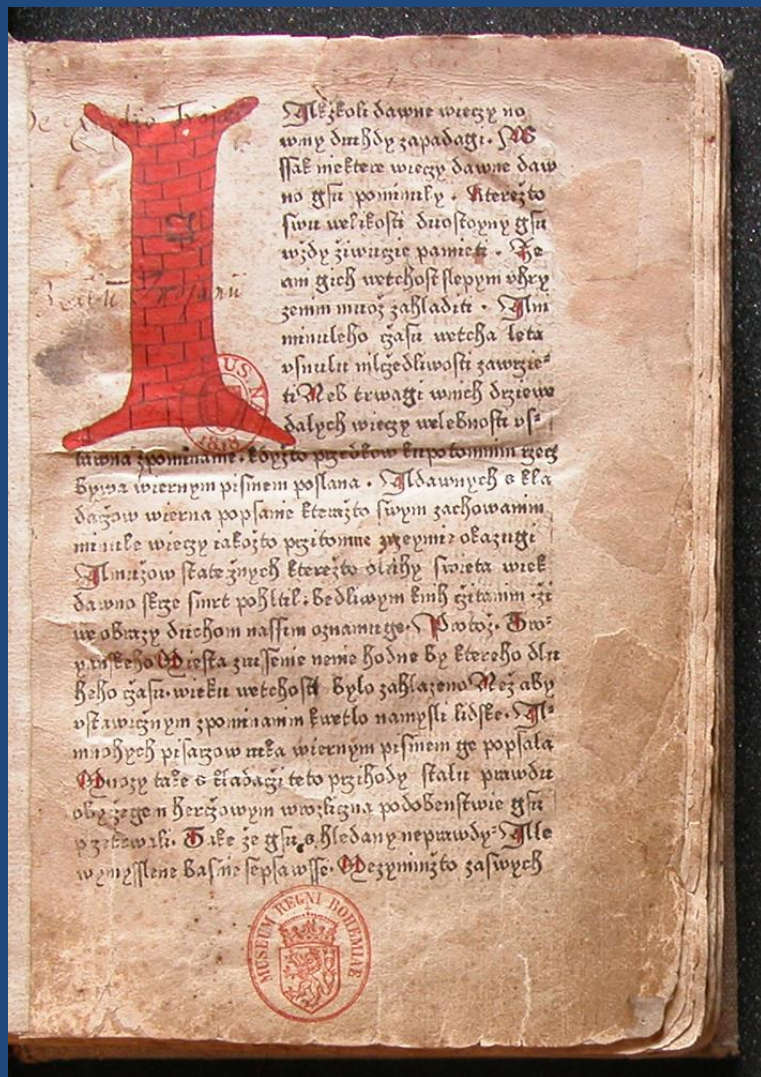 I
Akžkoli dawne wieczy no
wmy druhdy zapadagi. W
ssak niektere wieczy dawne daw
no gsu pominuly. Kterežto
swu welikosti duostoyny gsu
wždy žiwuczie pamieti. Že
ani gich wetchost slepym vhry
zenim muož zahladiti. Ani
minuleho czasu wetcha leta
vsnulu mlczedliwosti zawrzie-
ti Neb trwagi wnich drziewe
dalych wieczy welebnosti vs-
tawna zpominanie. kdyžto przedkow kupotomnim rzecz
bywa wiernym pismem poslana. A dawnych skla
daczow wierna popsanie kterežto swym zachowanim
minule wieczy iakožto przitomne okazugi
A mužow statecznych kterežto dluhy swieta wiek
dawno skrze smrt pohltil. bedliwym knih cžitanim ži
we obrazy duchom nassim oznamuge. Protož. Tro-
yanskeho Miesta zrussenie nenie hodne by ktereho dlu
heho cžasu. wieku wetchosti bylo zahlazeno Než aby
vstawicznym zpominanim kwetlo namysli lidske. A-
mnohych pisarzow ruka wiernym pismem ge popsala
Mnozy take skladaczi teto przihody stalu prawdu
obyczegem herczowym wrozliczna podobenstwie gsu
przetworzili. Take že gsu shledany neprawdy. Ale
wymysslene basnie sepsawsse. Mezynimižto zaswych
MUSEUM REGNI BOHEMIAE
1818